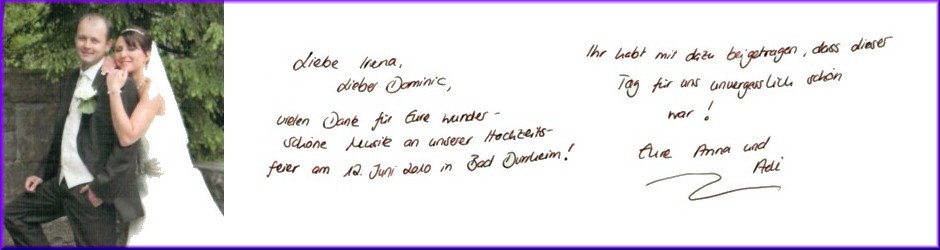 Liebe Irena,
lieber Dominic,
vielen Dank für Eure wunder-
schöne Musik an unserer Hochzeits-
feier am 12. Juni 2010 in Bad Dürrheim!
Ihr habt mit dazu beigetragen, dass dieser
Tag für uns unvergesslich schön
war!
Eure Anna und
Adi